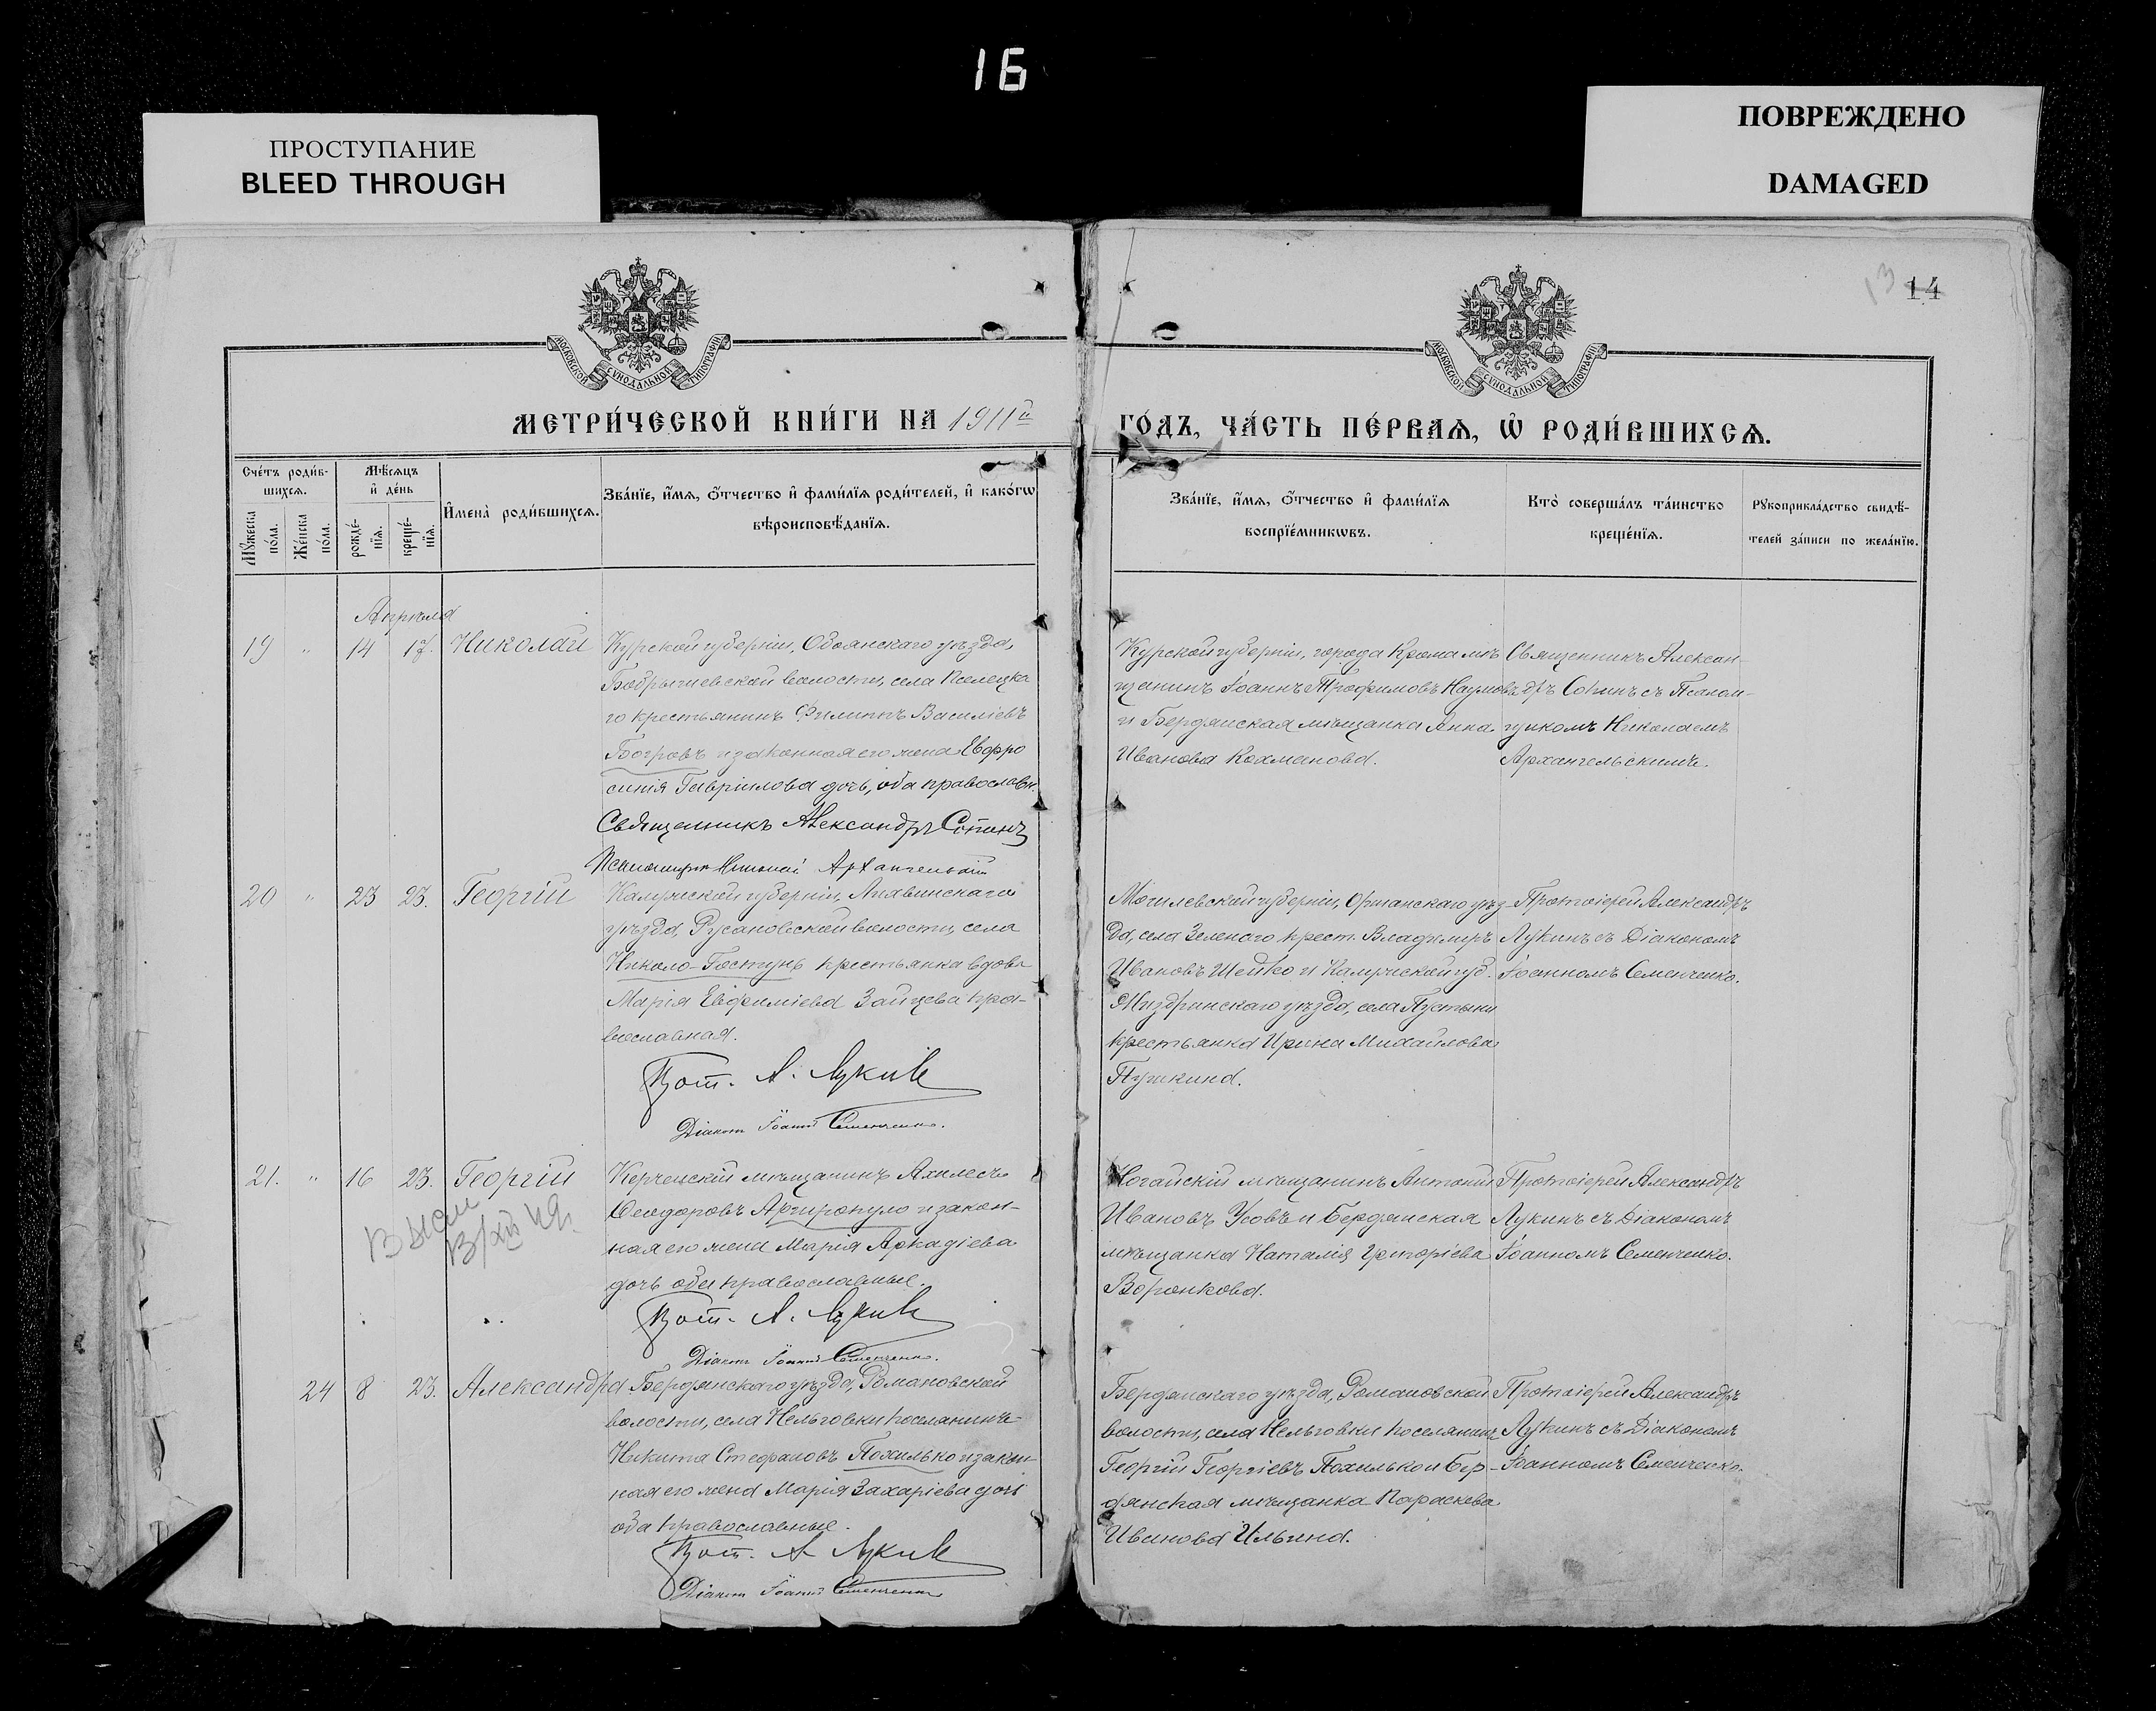 16
ПРОСТУПАНИЕ
BLEED THROUGH
ПОВРЕЖДЕНО
DAMAGED
13 14
МОСКОВСКОЙ СѴНОДАЛЬНОЙ ТИПОГРАФІИ
МОСКОВСКОЙ СѴНОДАЛЬНОЙ ТИПОГРАФІИ
МЕТРИ́ЧЕСКОЙ КНИ́ГИ НА 1911й
ГО́ДЪ, ЧА́СТЬ ПЕ́РВАѦ, Ѽ РОДИ́ВШИХСѦ.
Сче́тъ роди́в-
шихсѧ.
Мꙋ́жеска по́ла.
Же́нска по́ла.
Мѣ́сѧцъ
и҆ де́нь
рожде́-
нїѧ.
креще́-
нїѧ.
И҆мена̀ роди́вшихсѧ.
Зва́нїе, и҆́мѧ, ѻ҆́тчество и҆ фами́лїѧ роди́телей, и҆ како́гѡ
вѣроисповѣ́данїѧ.
Зва́нїе, и҆́мѧ, ѻ҆́тчество и҆ фами́лїѧ
воспрїе́мникѡвъ.
Кто̀ соверша́лъ та́инство
креще́нїѧ.
Рꙋкоприкла́дство свидѣ́-
телей за́писи по жела́нїю.
Апрѣля
19 " 14 17. Николай
Курской губерніи, Обоянскаго уѣзда,
Бобрышевской волости, села Пселецка
го крестьянинъ Филиппъ Василіевъ
Богровъ и законная его жена Евфро
синія Гавріилова дочь, оба православн.
Священникъ Александръ Сопинъ
Псаломщик Николай Архангельскій
Курской губерніи, города Крома мѣ
щанинъ Іоаннъ Трофимовъ Наумовъ
и Бердянская мѣщанка Анна
Иванова Кохманова.
Священникъ Алексан-
дръ Сопинъ съ Псалом-
щикомъ Николаемъ
Архангельскимъ.
20 " 23 23. Георгій
Калужской губерніи, Лихвинскаго
уѣзда, Русановской волости, села
Николо-Гостунь крестьянка вдова
Марія Евфиміева Зайцева пра-
вославная.
Прот. А. Лукинъ
Діаконъ Іоаннъ Семенченко.
Могилевской губерніи, Оршанскаго уѣз-
да, села Зеленаго крест. Владиміръ
Ивановъ Шейко и Калужской губ.
уѣзда, села Пустыни
крестьянка Ирина Михайлова
Пушкина.
Протоіерей Александръ
Лукинъ съ Діакономъ
Іоанномъ Семенченко.
21. " 16 23. Георгій
Керченскій мѣщанинъ Ахилесъ
Ѳеодоровъ Аргиропуло и закон-
ная его жена Марія Аркадіева
дочь оба православные.
Прот. А. Лукинъ
Діаконъ Іоаннъ Семенченко.
Ногайскій мѣщанинъ Антоній
Ивановъ Усовъ и Бердянская
мѣщанка Наталія Григоріева
Воронкова.
Протоіерей Александръ
Лукинъ съ Діакономъ
Іоанномъ Семенченко.
24 8 23. Александра
Бердянскаго уѣзда, Романовской
волости, села Нельговки поселянинъ
Никита Стефановъ Похилько и закон-
ная его жена Марія Захаріева дочь
оба православные.
Прот. А. Лукинъ
Діаконъ Іоаннъ Семенченко
Бердянскаго уѣзда, Романовской
волости, села Нельговки поселянинъ
Георгій Георгіевъ Похилько и Бер-
дянская мѣщанка Параскева
Иванова Ильина.
Протоіерей Александръ
Лукинъ съ Діакономъ
Іоанномъ Семенченко.